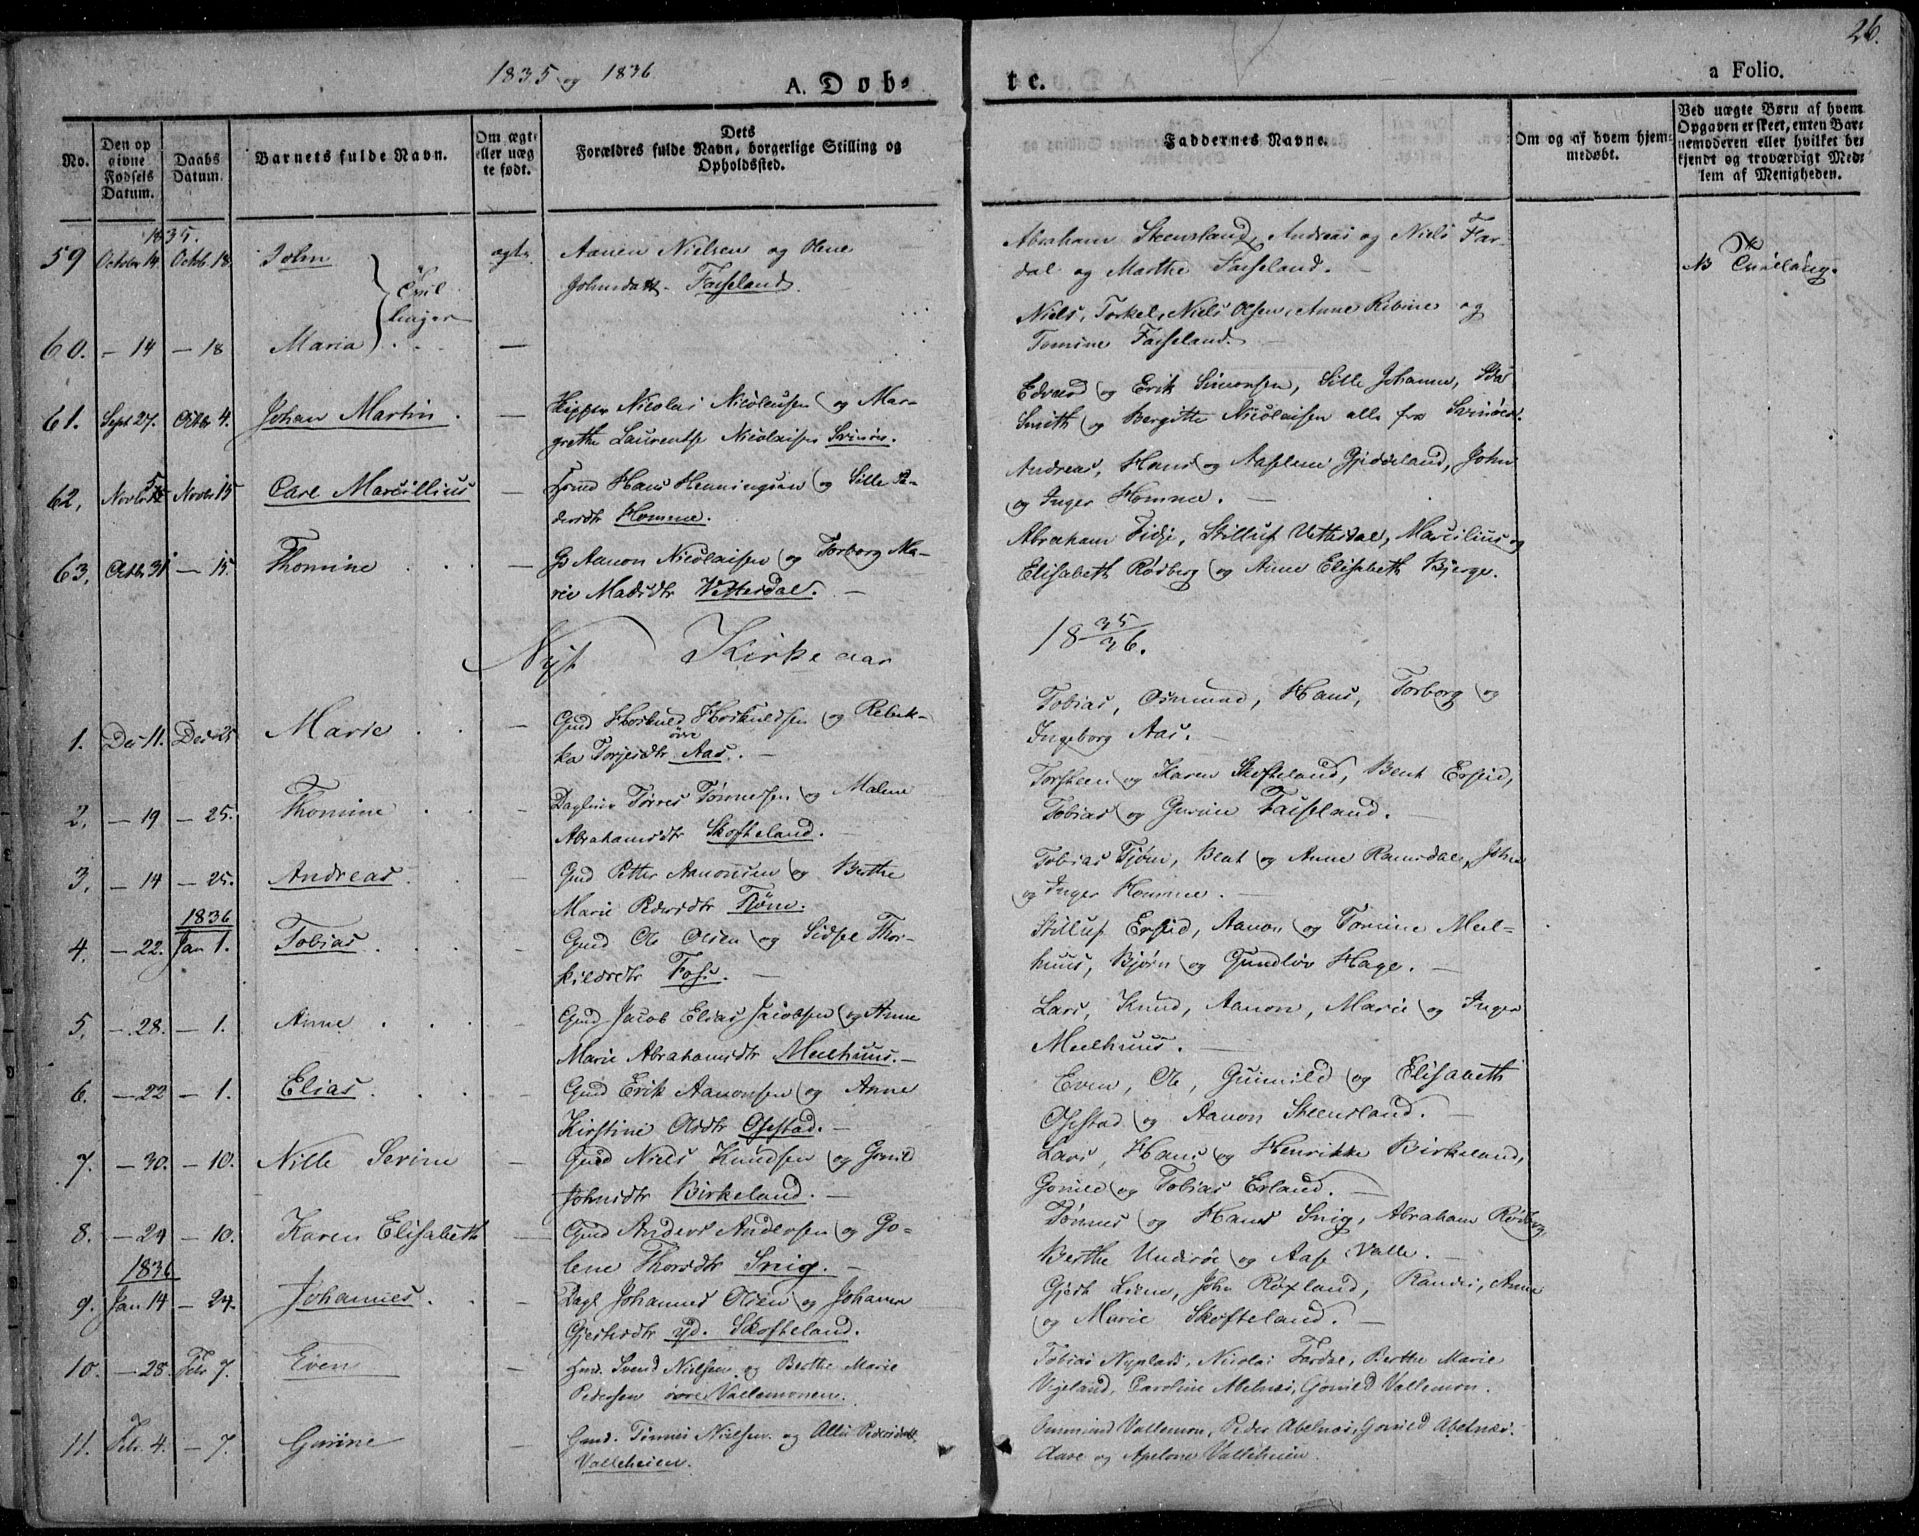 26.
1835 og 1836
A. Døb-
te.
a Folio.
No.
Den op
givne
Fødsels
Datum.
Daabs
Datum.
Barnets fulde Navn.
Om ægte
eller uæg
te født.
Dets
Forældres fulde Navn, borgerlige Stilling og
Opholdssted.
Faddernes Navne.
Om og af hvem hjem-
medøbt.
Ved uægte Børn af hvem
Opgaven er skeet, enten Bar-
nemoderen eller hvilket be-
kjendt og troværdigt Med-
lem af Menigheden.
1835.
59 Octobr 14 Octb. 18. John ægte Aanen Nielsen og Olene
Johnsdatt. Faiseland.
Abraham Steensland, Andreas og Niels Far-
dal og Marthe Faiseland.
NB Tvillinger.
60. — 14 — 18 Maria —
Niels, Torkel, Niels Olsen, Anne Ribine og
Tomine Faiseland.
61. Sept 27. Octbr 4. Johan Martin — Nicolai Nicolaisen og Mar-
grethe Laurentse Nicolaisen Svinør.
Edvard og Erik Simonsen, Sille Johanne,
Smith og Bergitte Nicolaisen alle fra Svinøer.
62. Novbr 5 Novbr 15 Carl Marsillius — Hans Henningsen og Sille Pe-
dersdtr Homme.
Andreas, Hans og Gjideland, John
og Inger Homme. —
63. Octbr 31 — 15. Thomine — Gs Aanon Nicolaisen og Torborg Ma-
rie Madsdtr Vettesdal. —
Abraham Fidje, Stillup Vettesdal, Marsilius og
Elisabeth Rødberg og Anne Elisabeth Bjerge.
Nyt Kirkeaar
18 35/36.
1. Dec 11. Dec 25 Marie — Gmd Hoskuld Hoskuldsen og Rebek-
ka Torjersdtr øvre Aas. —
Tobias, Osmund, Hans, Torborg og
Ingeborg Aas. —
2. — 19 — 25. Thomine — Tørres Tønnessen og Malene
Abrahamsdtr Skofteland.
Torsteen og Karen Skofteland, Bent Ersiid,
Tobias og Gurine Faiseland.
3. — 14 — 25. Andreas — Gmd Petter Aanonsen og Berthe
Marie Pedersdtr Tjøm.
Tobias Tjøm, Bent og Anne Ramsdal, John
og Inger Homme. —
1836
4. — 22. Jan 1. Tobias — Gmd Ole Olsen og Sidsel Thor-
kildsdtr Foss. —
Stillup Ersiid, Aanon og Tomine Meel-
huus, Bjørn og Gundlov Hage. —
5. — 28. — 1. Anne — Gmd Jacob Elias Jacobsen og Anne
Marie Abrahamsdtr Meelhuus. —
Lars, Knud, Aanon, Marie og Inger
Meelhuus. —
6. — 22 — 1. Elias — Gmd Erik Aanonsen og Anne
Kirstine Olsdtr Osestad. —
Even, Ole, Gunnild og Elisabeth
Osestad og Aanon Steensland. —
7. — 30. — 10. Nille Serine — Gmd Niels Knudsen og Gonild
Johnsdtr Birkeland. —
Lars, Hans og Henrikke Birkeland,
Gonild og Tobias Erland. —
8. — 24 — 10. Karen Elisabeth — Gmd Anders Andersen og Go-
lene Thorsdtr Snig. —
Tønnes og Hans Snig, Abraham Rødberg,
Berthe Underøe og Aase Valle. —
1836
9. Jan 14 — 24. Johannes — Dagl Johannes Olsen og Johanne
Gjertsdtr yd. Skofteland.
Gjert Liene, John Røxland, Randi, Anne
og Marie Skofteland. —
10. — 28. Febr 7. Even — Gmd. Svend Nielsen og Berthe Marie
Pedersen øvre Vallemonen.
Tobias Nyplads, Nicolai Fardal, Berthe Marie
Vigeland, Caroline Abelnæs, Gonild Vallemon.
11. Febr. 4. — 7. Gurine — Gmd. Tønnes Nielsen og Pedersdatt.
Valleheien.
Vallemon, Peder Abelnæs, Gonild Abelnæs.
og Apelone Valleheien.